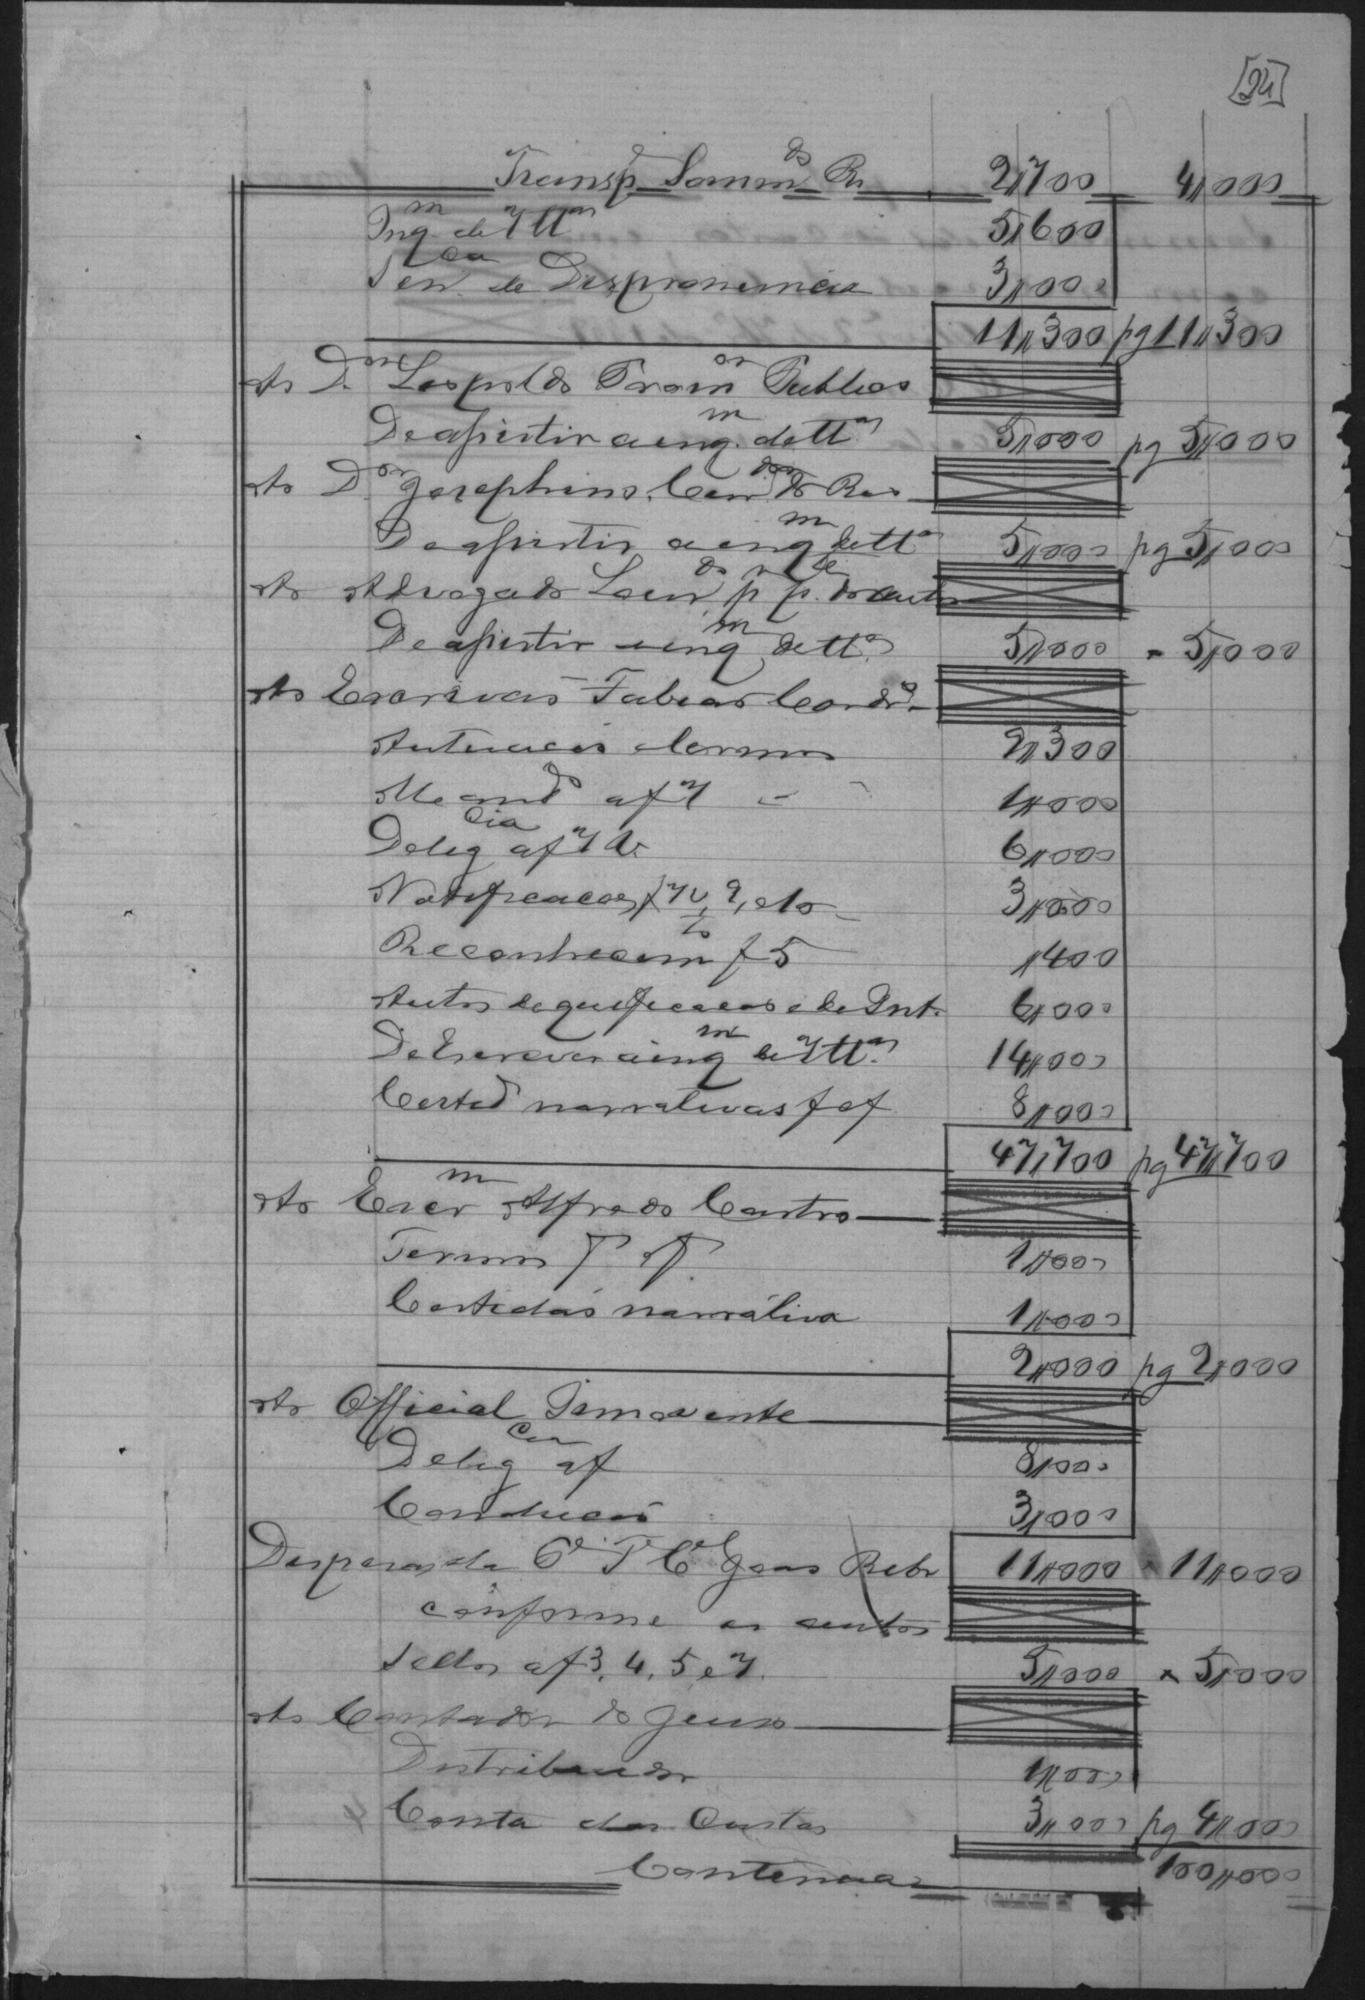 [24]
Transp. Somm. do Rs 2,,700 4,,000
Inq.m de 7 tt.as 5,,600
Sen.ca de Despronuncia 3,,000
11,,300 pg 11,,300
Ao D.or Leopoldo Prom.or Publico
De assistir a inq.m de tt.as 5,,000 pg 5,,000
Ao D.or Josephino
De assistir a inq.m de tt.as 5,,000 pg 5,,000
Ao Advogado
De assistir a inq.m de tt.as 5,,000 " 5,,000
Ao Escrivão Tobias Cord.o
Autuação e termos 2,,300
Mand.o a f 7 1,,000
Delig.cia a f 7 v. 6,,000
Notificacoes f 7 v, 9, e 10 3,,000
Reconhecim.to f 5 1400
Autos de qualificacão e de Int. 6,,000
De Escrever a inq.m de 7 tt.as 14,,000
Certid narrativas f e f 8,,000
47,,700 pg 47,,700
Ao Escr.m Alfredo Castro
Termos f e f 1,,000
Certidão narrativa 1,,000
2,,000 pg 2,,000
Ao Official
Delig.cia a f 8,,000
Conducão 3,,000
Despesas da João Rebo 11,,000 " 11,,000
conforme os autos
Sellos a f 3, 4, 5, e 7. 5,,000 " 5,,000
Ao Contador do Juizo
Distribuidor 1,,000
Conta das Custas 3,,000 pg 4,,000
100,,000